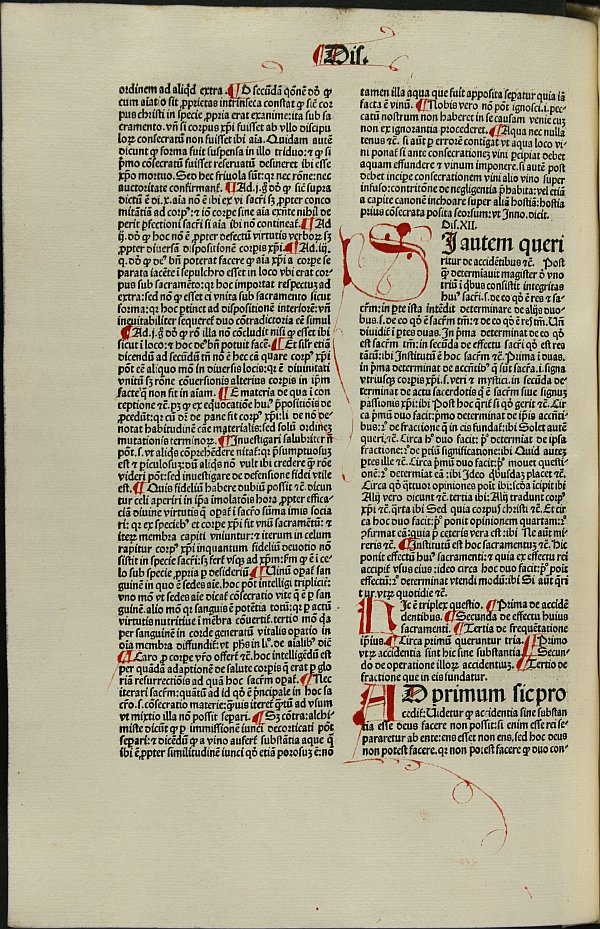 ¶Dis.
ordinem ad aliqđ extra. ¶D secūdam qōnē dō ꝙ
cum aīatō sit ꝓprietas intrinseca constat ꝙ sic̄ cor
pus christi in specie ꝓpria erat exanime: ita sub sa
cramento. vn̄ si corpus xp̄i fuisset ab vllo discipu
lorꝫ consecratū non fuisset ibi aīa. Quidam autē
dicunt ꝙ forma fuit suspensa in illo triduo: ⁊ ꝙ si
pʳmo cōsecratū fuisset reseruatū desineret ibi esse
xp̄o mortuo. Sed hec friuola sūt: qꝛ nec rōne: nec
auctoritate confirmant̄. ¶Ad .j. ꝗ̄ dō ꝙ sic̄ supra
dictū ē di. x. aīa nō ē ibi ex vi sacr̄i sꝫ ꝓpter conco
mitātiā ad corpꝰ: ⁊ iō corpe sine aīa exn̄te nihil de
perit ꝑfectioni sacr̄i si aīa ibi nō contineat̄. ¶Ad
ij. dō ꝙ hoc nō ē ꝓpter defectū virtutis verborꝫ sꝫ
ꝓpter diuersā dispositionē corpis xp̄i. ¶Ad .iij.
q. dō ꝙ deꝰ bn̄ poterat facere ꝙ aīa xp̄i a corpe se
parata iacēte ī sepulchro esset in loco vbi erat cor
pus sub sacramēto: qꝛ hoc importat respectuꝫ ad
extra: sed nō ꝙ esset ei vnita sub sacramento sicut
forma: qꝛ hoc ꝑtinet ad dispositionē interiorē: vn̄
ineuitabiliter sequeret̄ duo cōtradictoria eē simul
¶Ad .j. ꝗ̄ dō ꝙ rō illa nō cōcludit nisi ꝙ esset ibi
sicut ī loco: ⁊ hoc deꝰ bn̄ potuit facē. ¶Et silr̄ etiā
dicendū ad secūdū tn̄ nō ē hec cā quare corpꝰ xp̄i
pōt eē aliquo mō in diuersis locis: qꝛ ē diuinitati
vnitū sꝫ rōne cōuersionis alterius corpis in ip̄m
facte q̄ non fit in aīam. ¶E materia de qua ī con
ceptione ⁊ē. pꝫ ꝙ ꝫ equiuocatio huiꝰ ꝓpositōnis de
ꝓcedūt: qꝛ cū dr̄ de pane fit corpꝰ xp̄i: li de nō de-
notat habitudinē cāe materialis: sed solū ordinez
mutationis terminorꝫ. ¶Inuestigari salubriter ⁊c̄
pōt. s. vt aliqđ cōprehēdere nitat̄: qꝛ p̄sumptuosuꝫ
est ⁊ piculosuꝫ: dū aliqđ nō vult ibi credere ꝙ rōne
videri pōt: sed inuestigare de defensione fidei vtile
est. ¶Quis fideliū habere dubiū possit ⁊c̄ dicun
tur celi aperiri in ip̄a īmolatiōis hora ꝓpter effica-
ciā diuine virtutis q̄ opat̄ ī sacr̄o sūma imis socia
ri: qꝛ ex speciebꝰ et corpe xp̄i fit vnū sacramētū: ⁊
iterꝫ membra capiti vniuntur: ⁊ iterum in celum
rapitur corpꝰ xp̄i inquantum fideliū deuotio nō
sistit in specie sacr̄i: sꝫ fert̄ vsqꝫ ad xp̄m: ꝓm ꝙ ē ī ce-
lo sub specie ꝓpria ꝑ desideriū ¶Uinū opat̄ san
guinē in quo ē sedes aīe. hoc pōt intelligi tripliciter:
vno mō vt sedes aīe dicat̄ cōsecratio vite q̄ ē ꝑ san
guinē. alio mō qꝛ sanguis ē potētia totū: qꝛ ꝑ actū
virtutis nutritiue ī mēbra cōuertit̄. tertio mō qꝛ
per sanguinē in corde generatū vitalis oꝑatio in
oīa mēbra diffundit̄: vt ph̄s in li. de aīalibꝰ dic̄
¶Caro ꝓ corpe vrō offert̄ ⁊c̄. hoc intelligēdū est
per quādā adaptionē de salute corpis q̄ erat ꝑ glo
riā resurrectiōis ad quā hoc sacr̄m opat̄. ¶Nec
iterari sacr̄m: quātū ad id qō ē pʳncipale in hoc sa
cr̄o. s. consecratio materie: ꝙuis iteret̄ ꝙtū ad vsum
vt mixtio illa nō possit separi. ¶Sꝫ cōtra: alchi-
miste dicūt ꝙ ꝑ immissionē iunci decorticati pōt
separi: ⁊ dicēdū ꝙ a vino aufert̄ substātia aque q̄
ibi ē ꝓpter similitudinē iunci qō etiā porosuꝫ ē: nō
tamen illa aqua que fuit apposita sepatur quia iā
facta ē vinū. ¶Nobis vero nō pōt ignosci. i. pec-
caturū nostrum non haberet in se causam venie cuꝫ
non ex ignorantia procederet. ¶Aqua nec nulla
tenus ⁊c̄. si aūt ꝑ errorē contigat vt aqua loco vi-
ni ponat̄ si ante consecrationez vini pʳcipiat̄ debet
aquam effundere ⁊ vinum imponere. si autē post
debet incipe consecrationem vini alio vino super
infuso: contritōne de negligentia p̄habita: vel etiā
a capite canonē inchoare super aliā hostiā: hostia
prius cōsecrata posita seorsum: vt Inno. dicit.
Dis. XII.
SI autem queri
ritur de accidētibus ⁊c̄. Post
ꝙ determiauit magister ō vno
triū ī ꝗbus consistit integritas
huiꝰ sacr̄i. s. de eo qō ē res ⁊ sa-
cr̄m: in pte ista intēdit determinare de alijs duo-
bus. s. de eo qō ē sacr̄m tm̄: ⁊ de eo qō ē res tm̄. Un̄
diuidit̄ ī ptes duas. In pʳma determinat de eo qō
est sacr̄m tm̄: in secūda de effectu sacr̄i qō est res
tātū: ibi Institutū ē hoc sacr̄m ⁊c̄. Prima ī duas.
in pʳma determinat de accn̄tibꝰ q̄ sūt sacr̄a. i. signa
vtriusqꝫ corpis xp̄i. s. veri ⁊ mystici. in secūda de-
terminat de actu sacerdotis ꝗ ē sacr̄m siue signuꝫ
passionis xp̄i: ibi Post hec qrit̄ si qō gerit ⁊c̄. Cir
ca pʳmū duo facit: pʳmo determinat de ip̄is accn̄ti
bus: ⁊ de fractione q̄ in eis fundat̄: ibi Solet autē
queri. ⁊c̄. Circa hᵒ duo facit: pʳ determīat de ip̄sa
fractione: ⁊ de ptiū significatione: ibi Quid autez
ptes ille ⁊c̄. Circa pʳmū duo facit: pʳ mouet questi-
onē: ⁊ determīat eā: ibi Ideo ꝗbusdaꝫ placet ⁊c̄.
Circa qō q̄ttuor opiniones poit ibi: scđa īcipit ibi
Alij vero dicunt ⁊c̄. tertia ibi: Alij tradunt corpꝰ
xp̄i ⁊c̄. q̄rta ibi Sed quia corpus christi ⁊c̄. Et cir
ca hoc duo facit: pʳ ponit opinionem quartam: ⁊
ꝯfirmat eā: quia p̄ ceteris vera est: ibi Ne aūt mi-
reris ⁊c̄. ¶Institutū est hoc sacramentuꝫ ⁊c̄. Hic
ponit effectū huiꝰ sacramenti: ⁊ quia ex effectu rei
accipit̄ vsus eius: ideo circa hoc duo facit: pʳ poit
effectū: ⁊ determinat vtendi modū: ibi Si aūt qri
tur vtrꝫ quotidie ⁊c̄.
HIc ē triplex questio. ¶Prima de accidē
dentibus. ¶Secunda de effectu huius
sacramenti. ¶Tertia de frequētatione
ip̄ius. ¶Circa primū queruntur tria. ¶Primo
vtrꝫ accidentia sint hic sine substantia. ¶Secun-
do de operatione illorꝫ accidentiuꝫ. ¶Tertio de
fractione que in eis fundatur.
AD primum sic pro
cedit̄: Uidetur ꝙ accidentia sine substan
tia esse deus facere non possit: si enim esse rei se-
pararetur ab ente: ens esset non ens. sed hoc deus
non potest facere. qꝛ non potest facere ꝙ duo con-